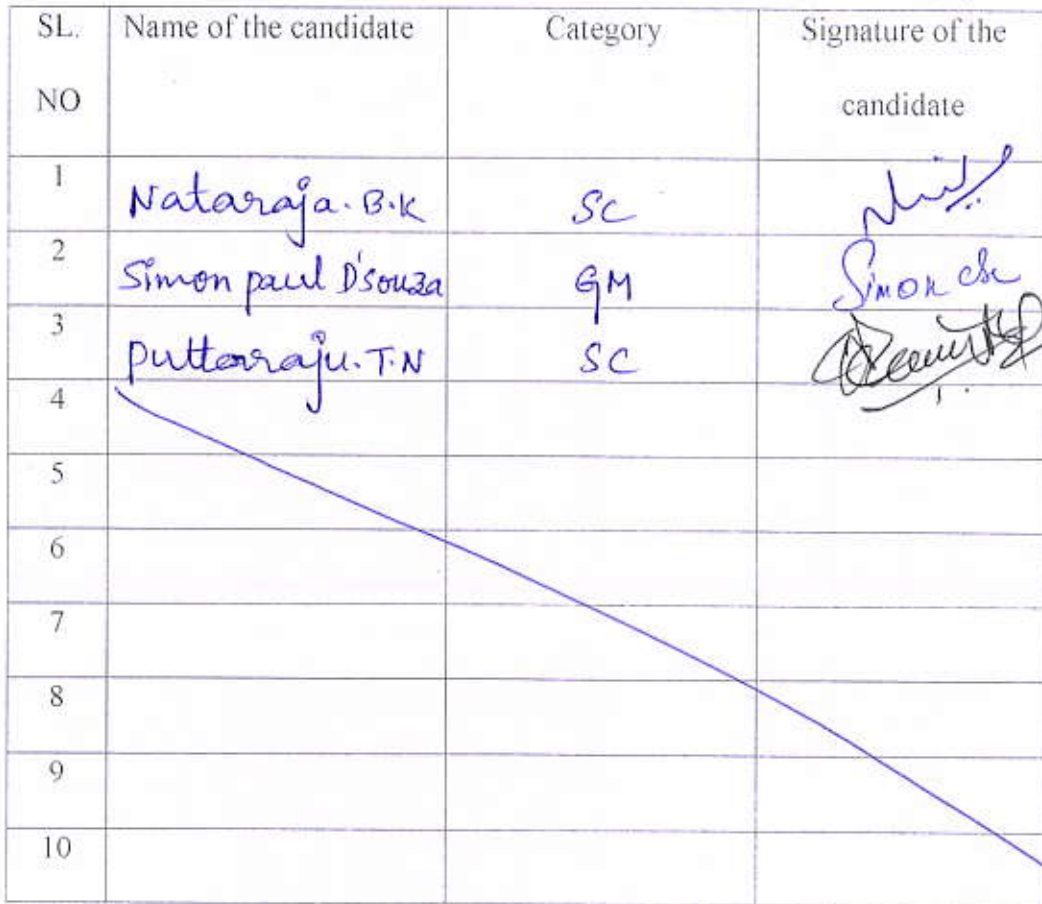 SL. NO Name of the candidate Category Signature of the candidate
1 Nataraja. B.K SC
2 Simon paul D'souza GM Simon
3 Puttarraju. T.N SC
4
5
6
7
8
9
10